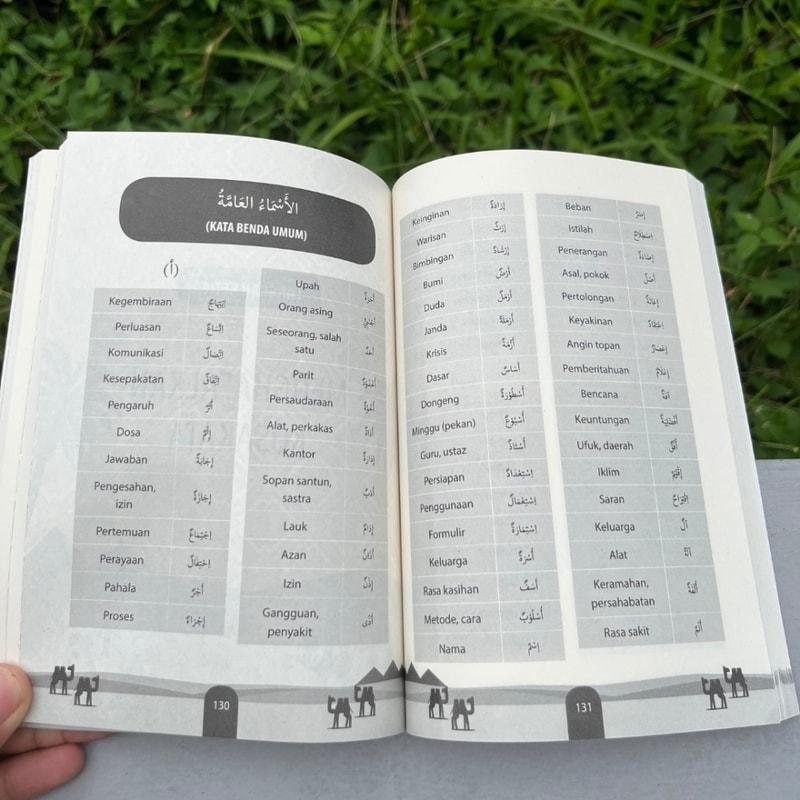 الأَسْمَاءُ العَامَّةُ
(KATA BENDA UMUM)
(أ)
Kegembiraan
Perluasan اِتِّسَاعٌ
Komunikasi اِتِّصَالٌ
Kesepakatan اِتِّفَاقٌ
Pengaruh أَثَرٌ
Dosa إِثْمٌ
Jawaban إِجَابَةٌ
Pengesahan,
izin إِجَازَةٌ
Pertemuan اِجْتِمَاعٌ
Perayaan اِحْتِفَالٌ
Pahala أَجْرٌ
Proses إِجْرَاءٌ
Upah أُجْرَةٌ
Orang asing أَجْنَبِيٌّ
Seseorang, salah
satu أَحَدٌ
Parit
Persaudaraan أُخُوَّةٌ
Alat, perkakas أَدَاةٌ
Kantor إِدَارَةٌ
Sopan santun,
sastra أَدَبٌ
Lauk إِدَامٌ
Azan أَذَانٌ
Izin إِذْنٌ
Gangguan,
penyakit أَذًى
130
Keinginan إِرَادَةٌ
Warisan إِرْثٌ
Bimbingan إِرْشَادٌ
Bumi أَرْضٌ
Duda أَرْمَلُ
Janda أَرْمَلَةٌ
Krisis أَزْمَةٌ
Dasar أَسَاسٌ
Dongeng أُسْطُوْرَةٌ
Minggu (pekan) أُسْبُوْعٌ
Guru, ustaz أُسْتَاذٌ
Persiapan اِسْتِعْدَادٌ
Penggunaan اِسْتِعْمَالٌ
Formulir اِسْتِمَارَةٌ
Keluarga أُسْرَةٌ
Rasa kasihan أَسَفٌ
Metode, cara أُسْلُوْبٌ
Nama اِسْمٌ
Beban إِصْرٌ
Istilah اِصْطِلَاحٌ
Penerangan إِضَاءَةٌ
Asal, pokok أَصْلٌ
Pertolongan إِعَانَةٌ
Keyakinan اِعْتِقَادٌ
Angin topan إِعْصَارٌ
Pemberitahuan إِعْلَامٌ
Bencana آفَةٌ
Keuntungan
Ufuk, daerah أُفُقٌ
Iklim إِقْلِيْمٌ
Saran اِقْتِرَاحٌ
Keluarga آلٌ
Alat آلَةٌ
Keramahan,
persahabatan أُلْفَةٌ
Rasa sakit أَلَمٌ
131